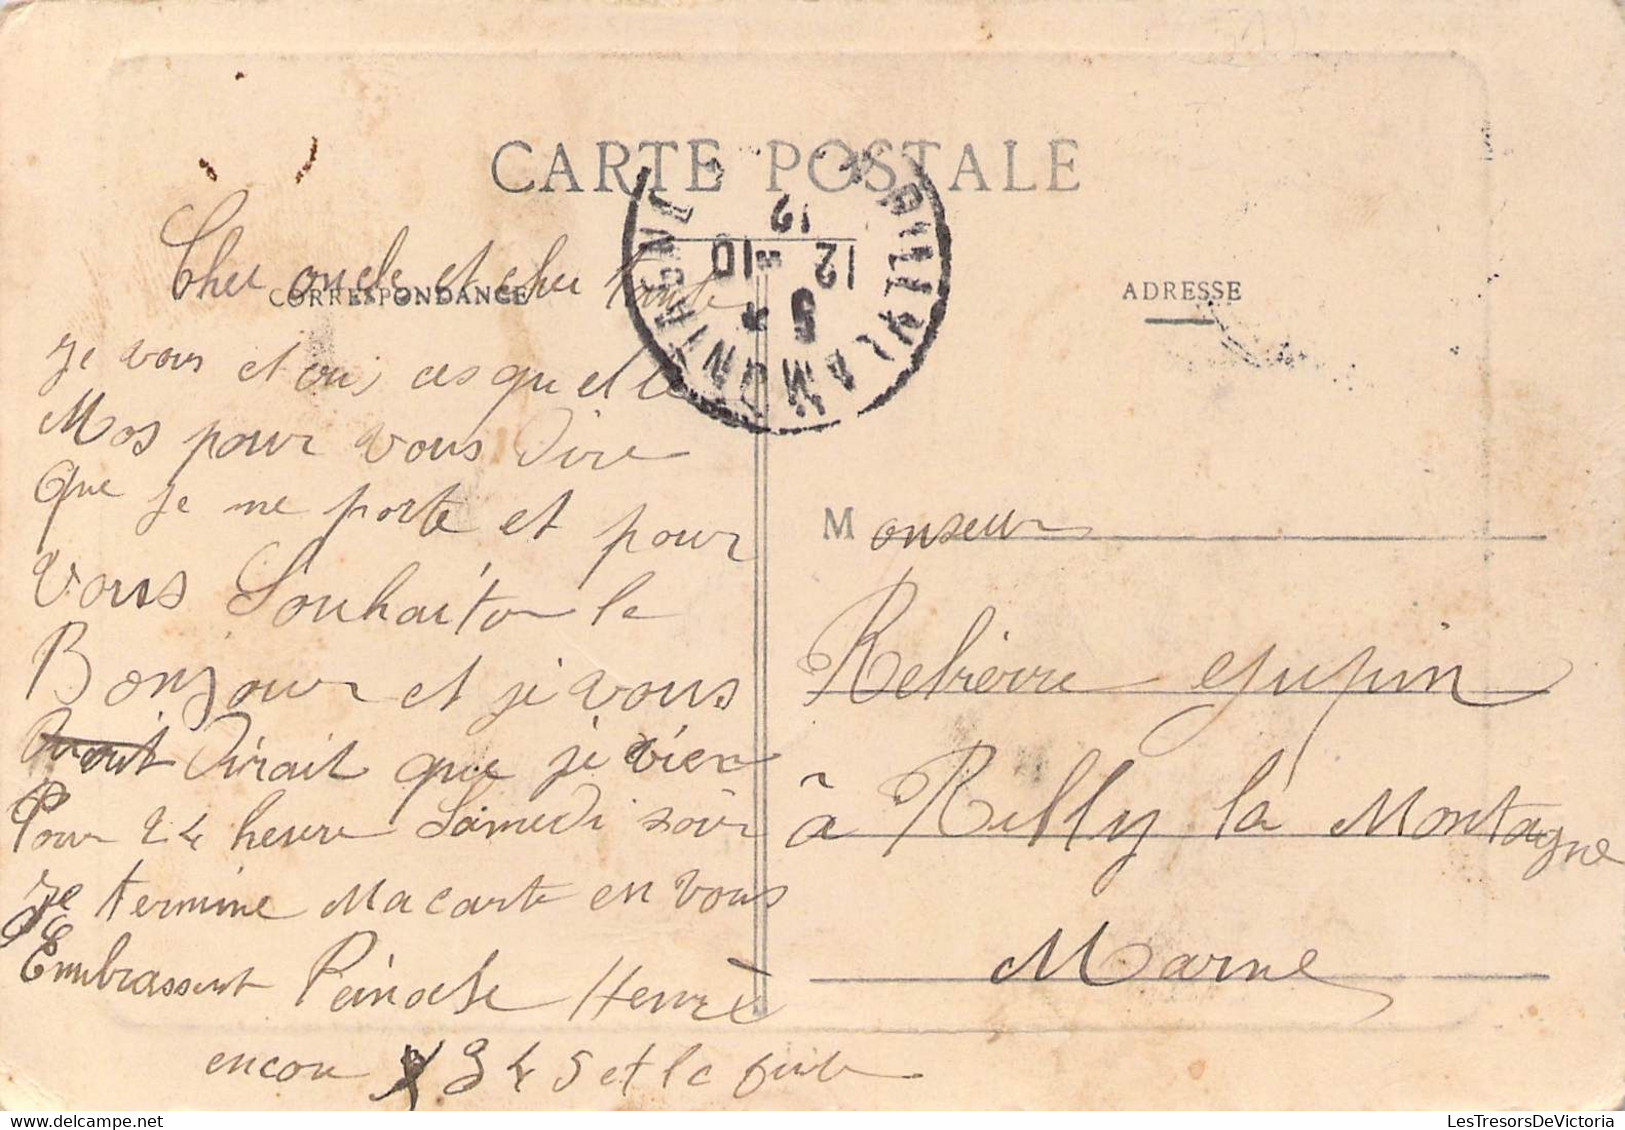 CARTE POSTALE
CORRESPONDANCE
Cher oncle et cher tante
je vous et cri ces quelle
Mos pour vous dire
que je me porte et pour
vous Souhaiter le
Bonjour et je vous
dirait que je vien
Pour 24 heure Samedi soir
je termine Ma carte en vous
Embrassent Peinoche Henri
encor 345 et la fuite
RILLY LA MONTAGNE
10 12
5
12
ADRESSE
Monseur
Rebierre Jupin
à Rilly la Montagne
Marne
LesTresorsDeVictoria